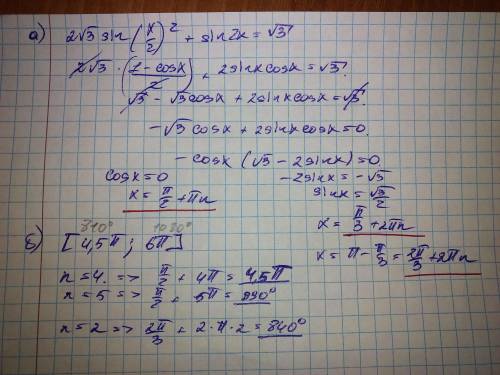 а) 2√3 sin(x/2)² + sin2x = √3
2√3 · (1 - cosx)/2 + 2sinxcosx = √3.
√3 - √3cosx + 2sinxcosx = √3.
-√3cosx + 2sinxcosx = 0.
-cosx (√3 - 2sinx) = 0
cosx = 0
x = π/2 + πn
-2sinx = -√3
sinx = √3/2
x = π/3 + 2πn
x = π - π/3 = 2π/3 + 2πn
810° 1080°
б) [4,5π ; 6π]
n = 4. => π/2 + 4π = 4,5π
n = 5 => π/2 + 5π = 990°
n = 2 => 2π/3 + 2·π·2 = 840°